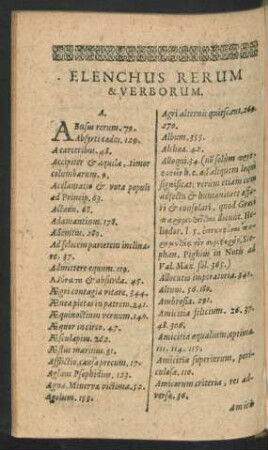 ELENCHUS RERUM
& VERBORUM.
A.
ABusus rerum. 79.
Absyrti cædes. 129.
A carceribus. 48.
Accipiter & aquila, timor
columbarum. 9.
Acclamatio & vota populi
ad Princip. 63.
Actæus. 68.
Adamantinum. 178.
Ademitus. 269.
Ad solve imparetem inclina-
re. 37.
Admittere equum. 119.
& obsœda. 45.
Ægre contagia vitate. 344.
Æneæ pietas in patrem. 241.
Æquinoctium vernum. 140.
Æquor in circo. 47.
Æsculapius. 262.
Æstus marinus. 31.
Afflictio, causa precum. 17.
Aglaus Psophidius. 123.
Agna Minervæ victima. 52.
Agolum. 155.
Agri alternis quiescant. 269.
270.
Album. 355.
Althea. 42.
Alloqui. 34. (non solum
h. e. ad aliquem loqui
significat. verum etiam cum
adjectu & humanitate affa-
ri & consolari, quod Græci
dicunt. He-
liodor. l. 5.
Ste-
phan. Pighius in Notis ad
Val. Max. fol. 365.)
Allocutio imperatoria. 341.
Altum. 56. 180.
Ambrosia. 291.
Amicitia felicium. 26. 37.
48. 306.
Amicitia æqualium, optima.
111. 114. 115.
Amicitia superiorum, peri-
culosa. 110.
Amicorum criteria, res ad-
versæ. 36.
Amicus